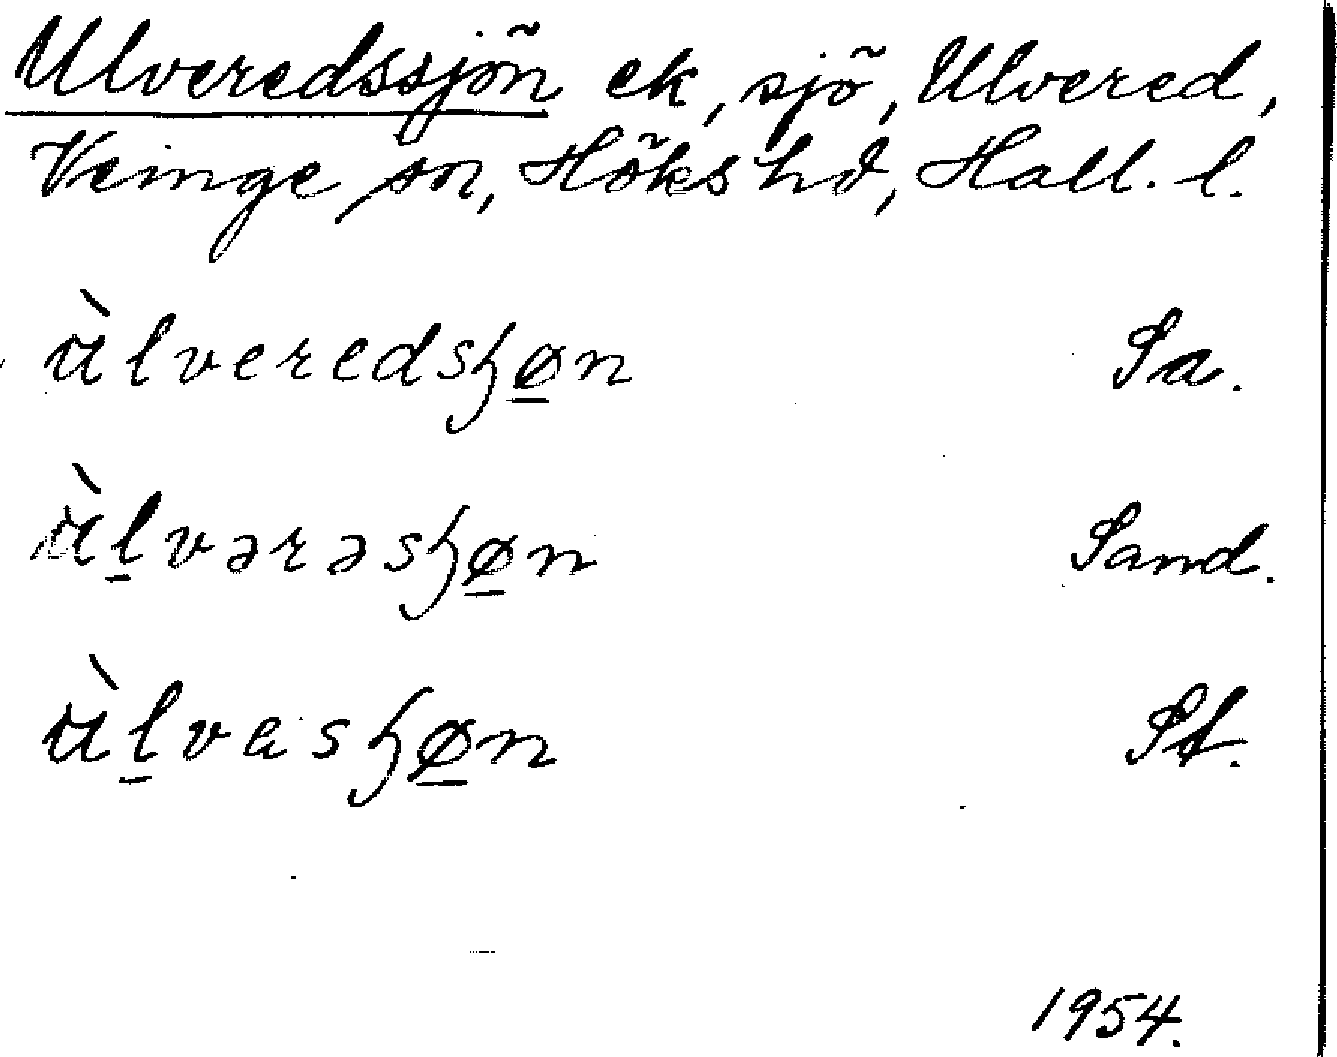 Ulveredssjön ek, sjö, Ulvered,
Veinge sn, Höks hd, Hall. l.
ùlveredsꜧø̲n Sa.
ùl̲vərəsꜧø̲n Sand.
ùl̲vasꜧø̲n St.
1954.